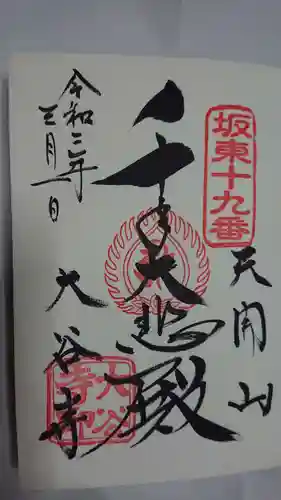 坂東十九番
天開山
千手大悲殿
令和三年
三月一日
大谷寺